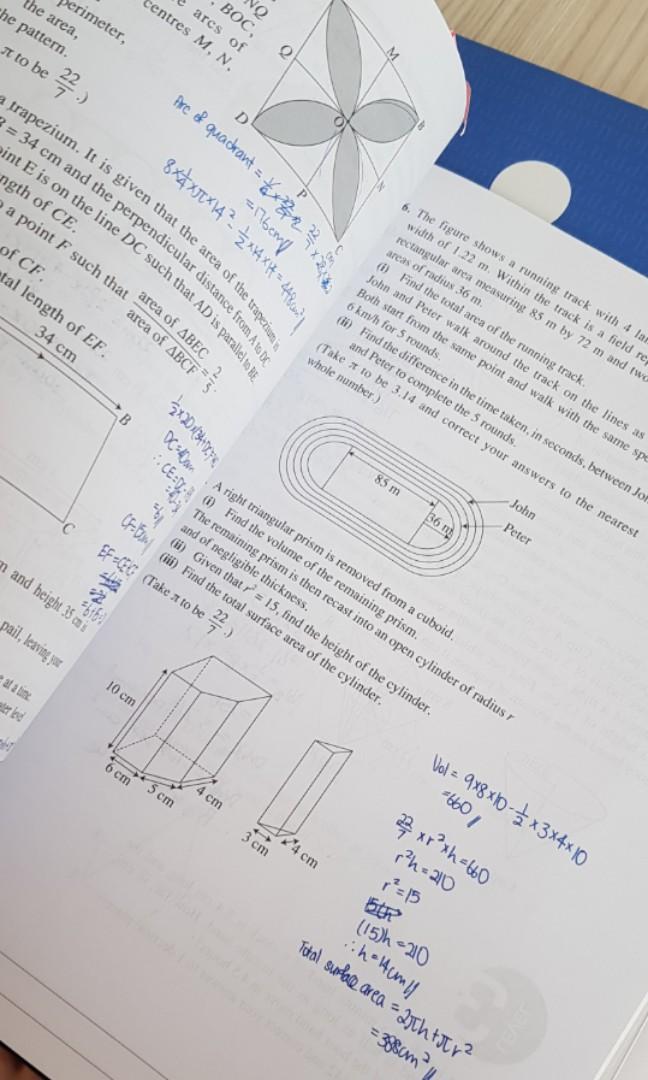 NQ
, BOC,
e arcs of
centres M, N,
perimeter,
the area,
he pattern.
π to be 22/7.)
Q
M
D
O
B
P
N
C
Arc of quadrant =
= 176cm
8×¼×π×14² - ½×14×14 =
a trapezium. It is given that the area of the trapezium is
= 34 cm and the perpendicular distance from A to DC
oint E is on the line DC such that AD is parallel to BE.
ngth of CE.
a point F such that area of ΔBEC / area of ΔBCF = 2/5.
of CF.
tal length of EF.
34 cm
B
C
m and height 35 cm is
pail, leaving your
at a time.
6. The figure shows a running track with 4 lan
width of 1.22 m. Within the track is a field rep
rectangular area measuring 85 m by 72 m and two
areas of radius 36 m.
(i) Find the total area of the running track.
John and Peter walk around the track on the lines as
Both start from the same point and walk with the same spe
6 km/h for 5 rounds.
(ii) Find the difference in the time taken, in seconds, between Joh
and Peter to complete the 5 rounds.
(Take π to be 3.14 and correct your answers to the nearest
whole number.)
85 m
36 m
John
Peter
A right triangular prism is removed from a cuboid.
(i) Find the volume of the remaining prism.
The remaining prism is then recast into an open cylinder of radius r
and of negligible thickness.
(ii) Given that r² = 15, find the height of the cylinder.
(iii) Find the total surface area of the cylinder.
(Take π to be 22/7.)
10 cm
6 cm
5 cm
4 cm
3 cm
4 cm
Vol = 9×8×10 - ½×3×4×10
= 660
22/7 × r² × h = 660
r²h = 210
r² = 15
(15)h = 210
∴ h = 14cm
Total surface area = 2πh + πr²
= 388cm²